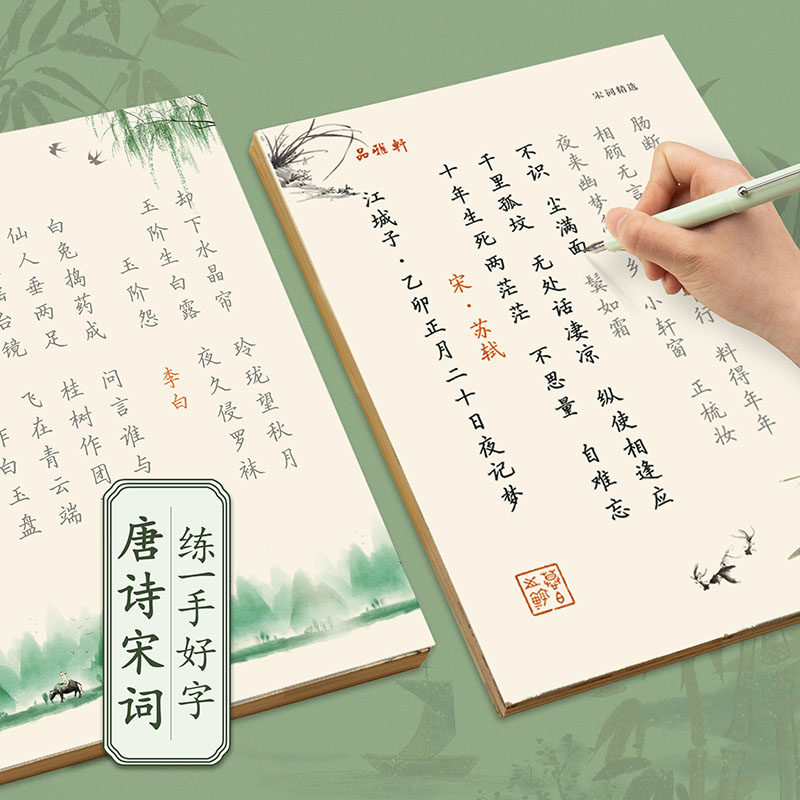 作白玉盘
台镜 飞在青云端
仙人垂两足 桂树作团
白兔捣药成 问言谁与
玉阶怨 李白
玉阶生白露 夜久侵罗袜
却下水晶帘 玲珑望秋月
唐诗宋词
练一手好字
品雅轩
宋词精选
江城子·乙卯正月二十日夜记梦
宋·苏轼
十年生死两茫茫 不思量 自难忘
千里孤坟 无处话凄凉 纵使相逢应
不识 尘满面 鬓如霜
夜来幽梦 乡 小轩窗 正梳妆
相顾无言 行 料得年年
肠断